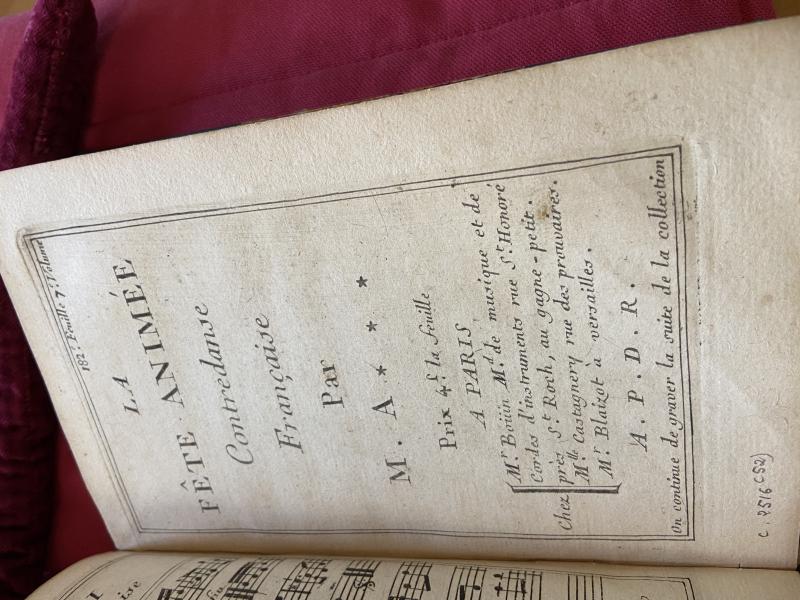 182.e Feuille 7.e Volume
LA
FÊTE ANIMÉE
Contredanse
Française
Par
M. A * * *
Prix 4.s la feuille
A PARIS
Mr Boüin Md de musique et de
Cordes d'instruments rue St Honoré
Chez près St Roch, au gagne-petit.
Mlle Castagnery rue des prouvaires.
Mr Blaizot à versailles.
A. P. D. R.
On continue de graver la suite de la collection
c. 7516 (52)